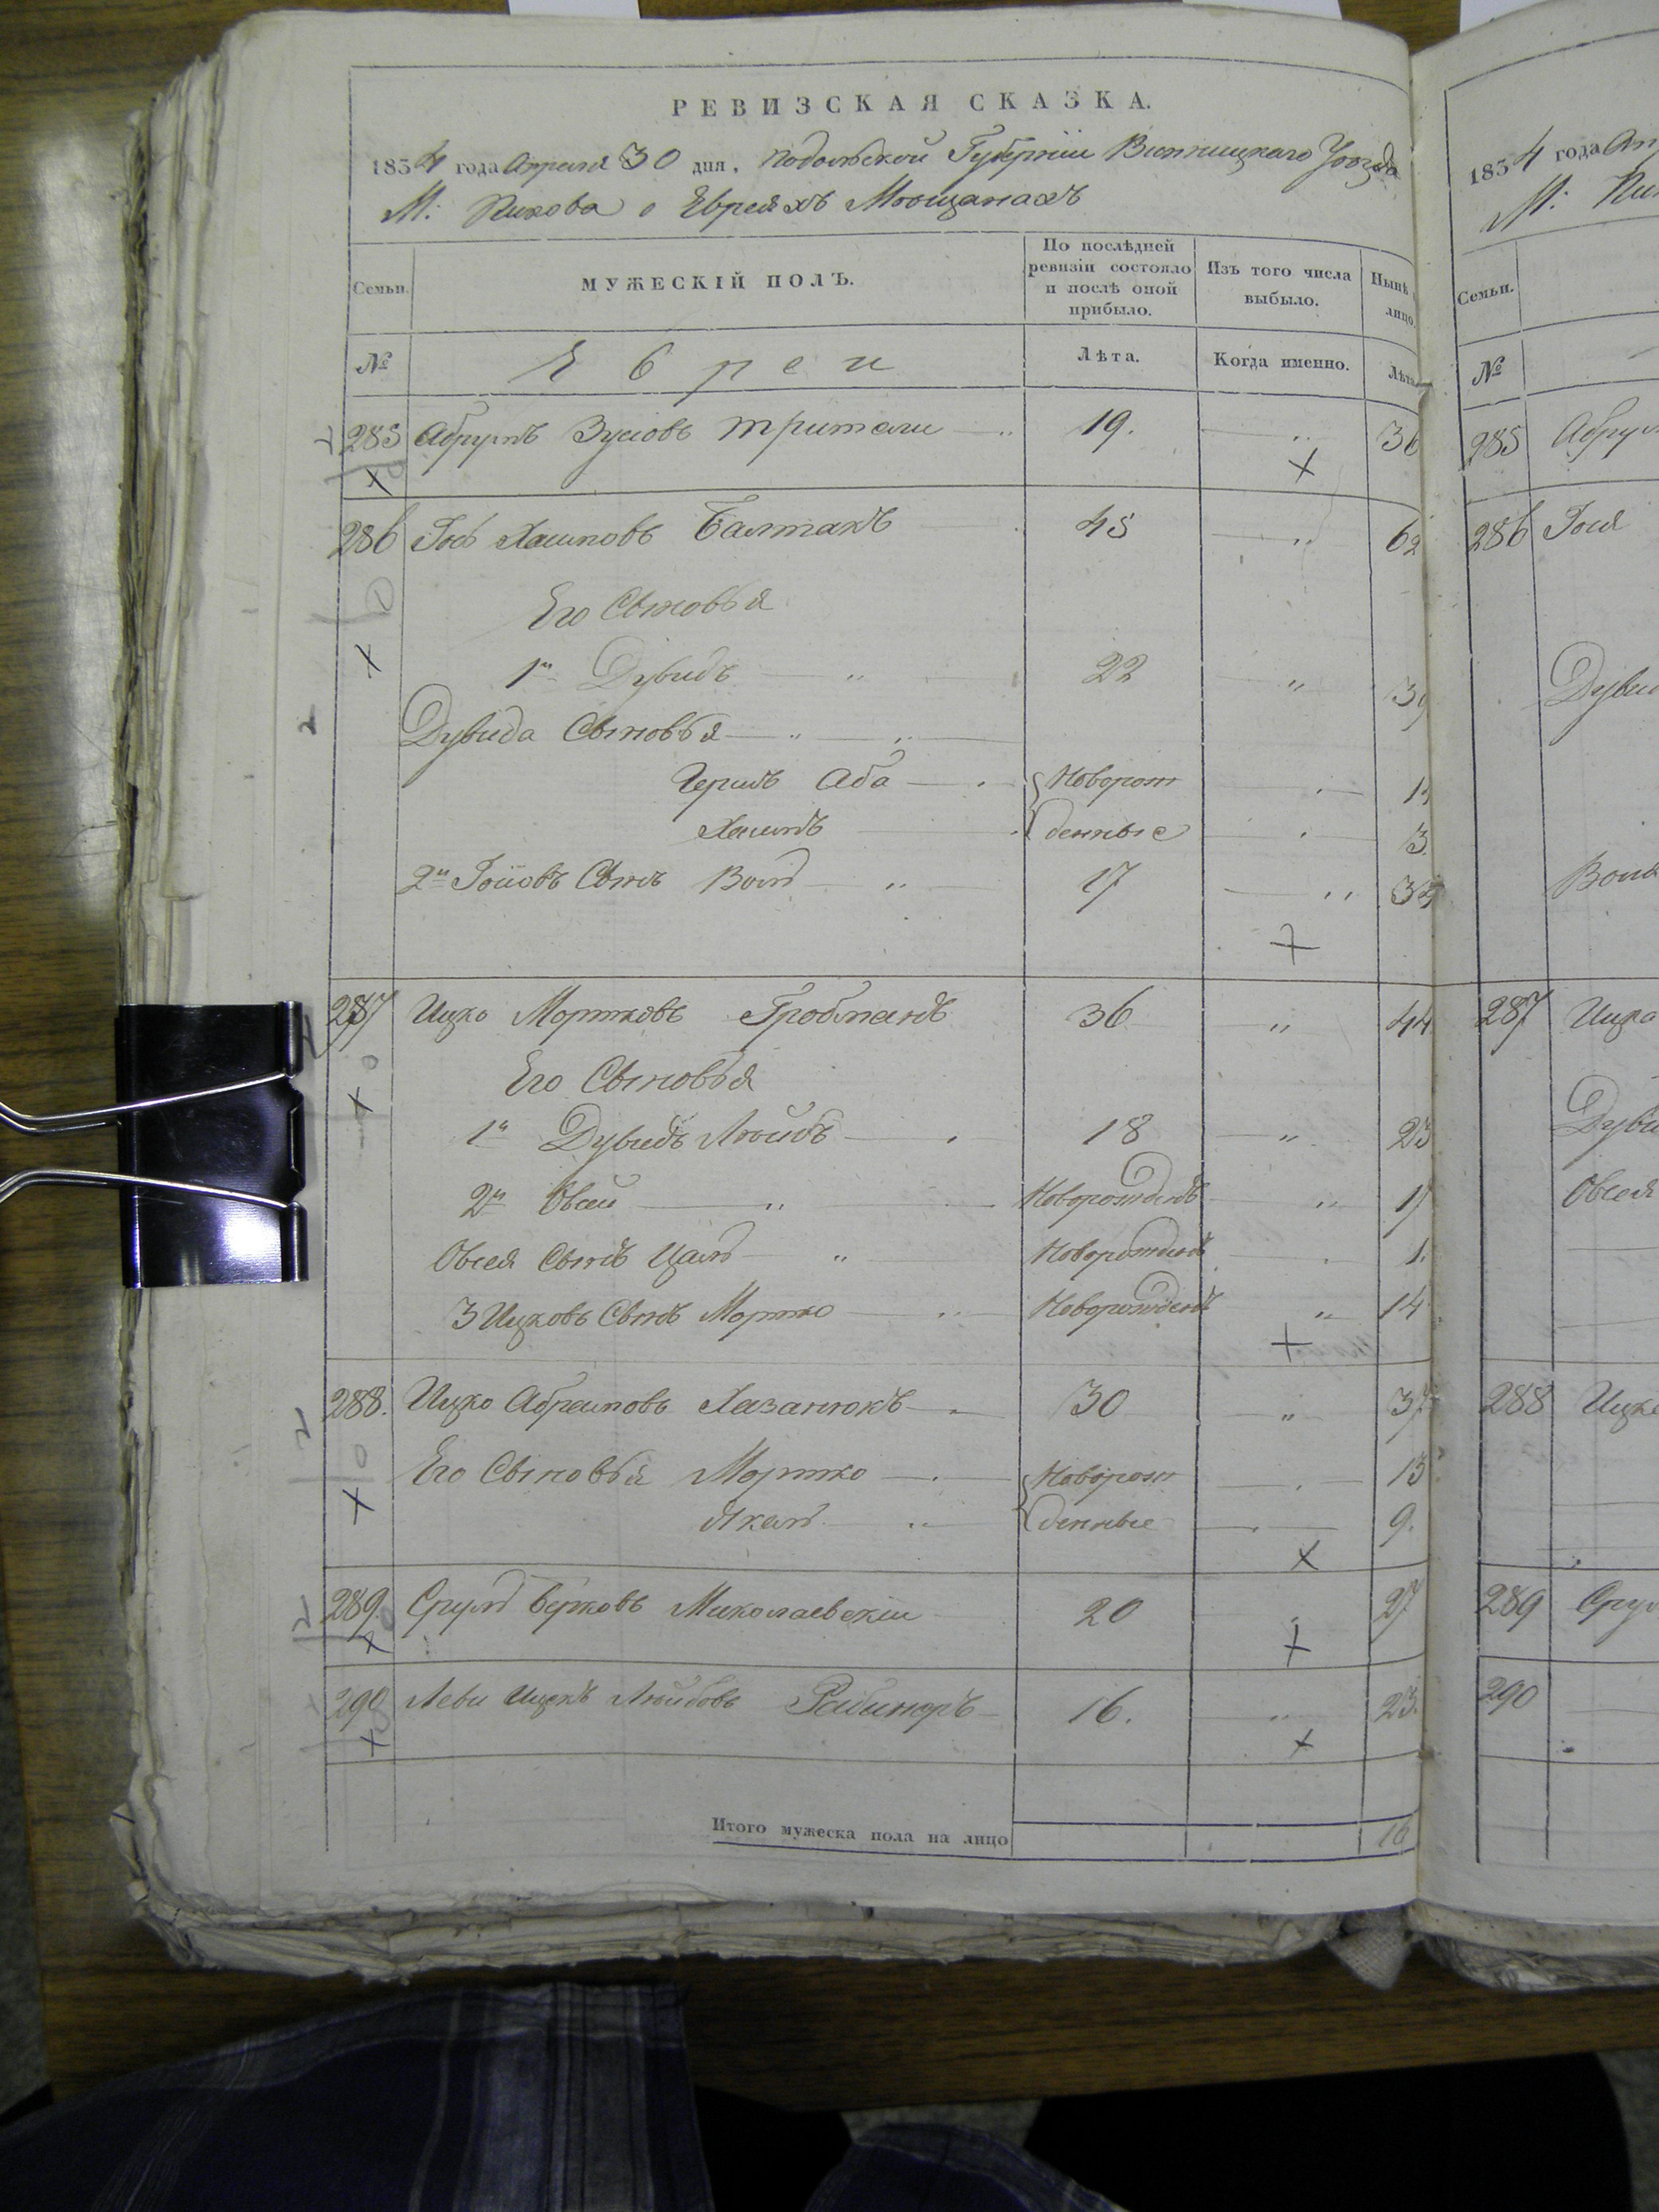 РЕВИЗСКАЯ СКАЗКА.
1834 года Апреля 30 дня, Подольской Губерніи Винницкаго Уѣзда
М: Пикова о Евреяхъ Мѣщанахъ
Семьи.
МУЖЕСКІЙ ПОЛЪ.
По послѣдней ревизіи состояло и послѣ оной прибыло.
Изъ того числа выбыло.
Нынѣ лицо
№
Евреи
Лѣта.
Когда именно.
Лѣта
285 Абрумъ Зусіовъ 19. 36
286 Іось Хаимовъ Балтакъ 45 62
Его Сыновья
1й Дувидъ 22 39
Дувида Сыновья
Гершъ Аба Новорож
Хаимъ денные 3
2й Іосіовъ Сынъ Волѣ 17 34
287 Ицко Мортковъ Гробманъ 36 44
Его Сыновья
1й Дувидъ Лейбъ 18 25
2й Овсей Новорожденъ 17
Овсея Сынъ Новорожденъ 1.
3 Ицковъ Сынъ Мортко Новорожденъ 14
288. Ицко Абрамовъ Хазанюкъ 30 37
Его Сыновья Мортко Новорож 15
денные 9.
289. Сруль Берковъ Миколаевскіи 20 27
290 Леви Ицекъ Лейбовъ 16. 23.
Итого мужеска пола на лицо 16
1834 года Ап
М: Пи
Семьи.
№
285 Абру
286 Іося
Дувид
287 Ицка
Дуви
Овсея
288 Ицка
289 Срул
290